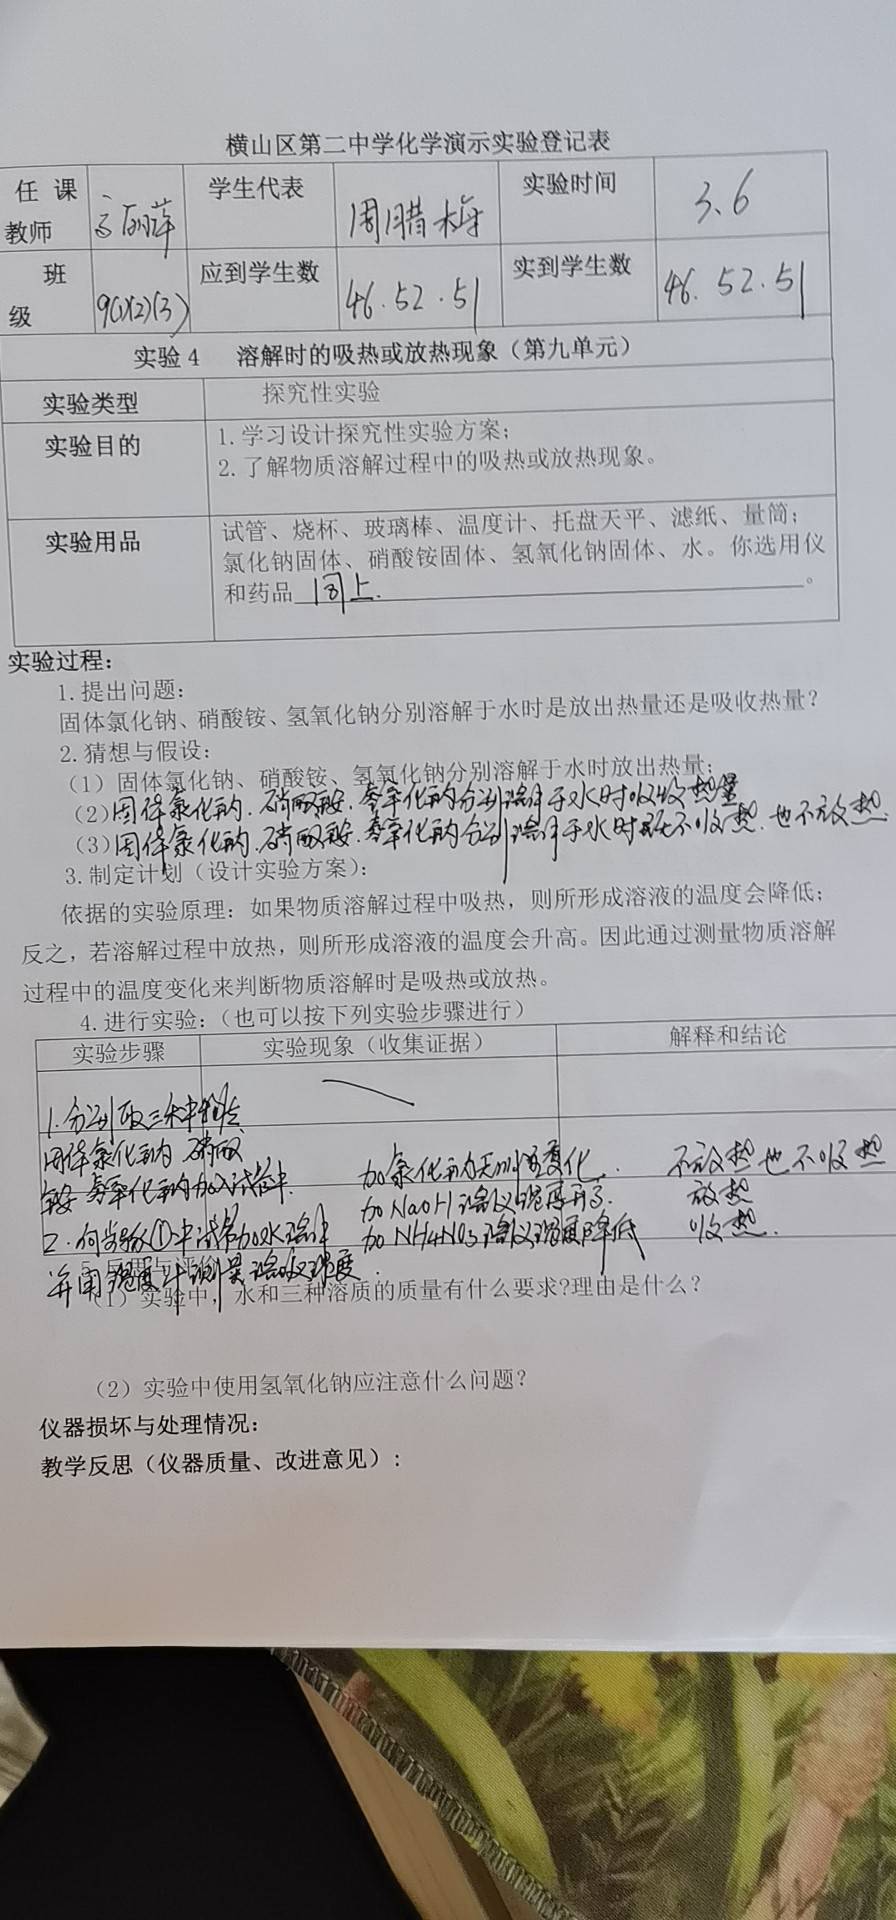 横山区第二中学化学演示实验登记表
任课教师 学生代表 周腊梅 实验时间 3.6
班级 9(1)(2)(3) 应到学生数 46.52.51 实到学生数 46.52.51
实验4 溶解时的吸热或放热现象（第九单元）
实验类型 探究性实验
实验目的 1.学习设计探究性实验方案；
2.了解物质溶解过程中的吸热或放热现象。
实验用品 试管、烧杯、玻璃棒、温度计、托盘天平、滤纸、量筒；
氯化钠固体、硝酸铵固体、氢氧化钠固体、水。你选用仪
和药品 同上. 。
实验过程：
1.提出问题：
固体氯化钠、硝酸铵、氢氧化钠分别溶解于水时是放出热量还是吸收热量？
2.猜想与假设：
（1）固体氯化钠、硝酸铵、氢氧化钠分别溶解于水时放出热量；
（2）固体氯化钠.硝酸铵.氢氧化钠分别溶解于水时吸收热量
（3）固体氯化钠.硝酸铵.氢氧化钠分别溶解于水时既不吸热.也不放热.
3.制定计划（设计实验方案）：
依据的实验原理：如果物质溶解过程中吸热，则所形成溶液的温度会降低；
反之，若溶解过程中放热，则所形成溶液的温度会升高。因此通过测量物质溶解
过程中的温度变化来判断物质溶解时是吸热或放热。
4.进行实验：（也可以按下列实验步骤进行）
实验步骤 实验现象（收集证据） 解释和结论
1.分别取三种
固体氯化钠 硝酸
铵 氢氧化钠加入试管中. 加氯化钠无明显变化. 不放热也不吸热
加NaOH溶液温度升高. 放热
2.向步骤①中试管加水溶解 加NH4NO3溶液温度降低 吸热.
并用温度计测量溶液温度.
5.反思与评价
（1）实验中，水和三种溶质的质量有什么要求?理由是什么？
（2）实验中使用氢氧化钠应注意什么问题？
仪器损坏与处理情况：
教学反思（仪器质量、改进意见）：